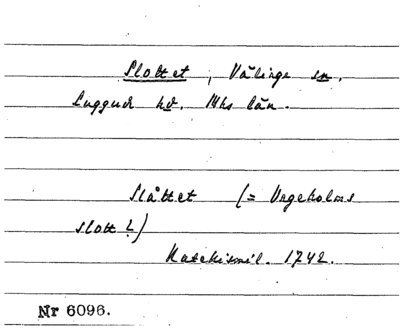 Slottet, Välinge sn.
Luggude hd. Mhs län.
Slåttet (= Vegeholms
slott?)
Katekismil. 1742.
Nr 6096.